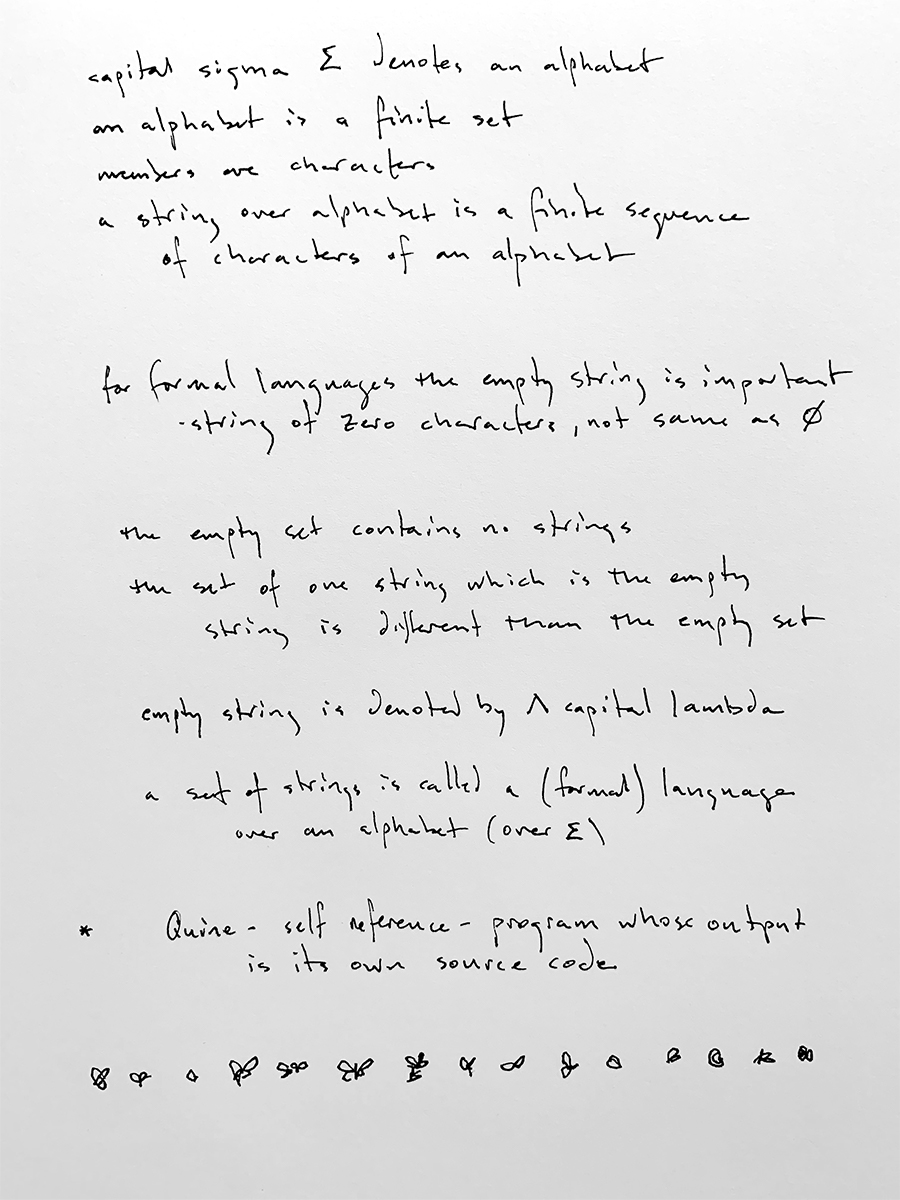 capital sigma Σ denotes an alphabet
an alphabet is a finite set
members are characters
a string over alphabet is a finite sequence
of characters of an alphabet
for formal languages the empty string is important
-string of zero characters, not same as ∅
the empty set contains no strings
the set of one string which is the empty
string is different than the empty set
empty string is denoted by Λ capital lambda
a set of strings is called a (formal) language
over an alphabet (over Σ)
* Quine - self reference - program whose output
is its own source code